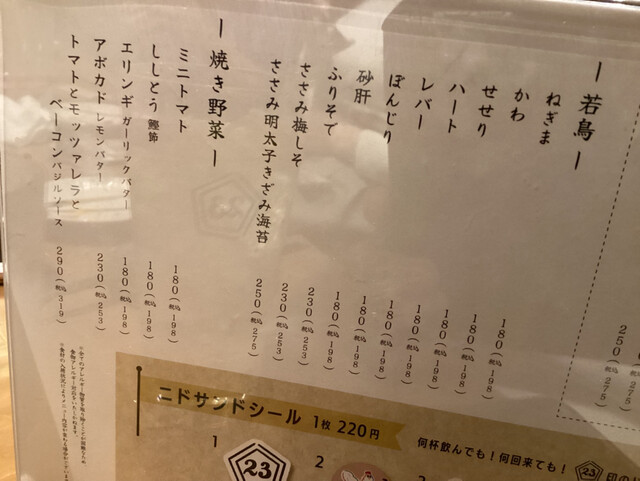 250(税込275)
― 若鳥 ―
ねぎま 180(税込198)
かわ 180(税込198)
せせり 180(税込198)
ハート 180(税込198)
レバー 180(税込198)
ぼんじり 180(税込198)
砂肝 180(税込198)
ふりそで 230(税込253)
ささみ梅しそ 230(税込253)
ささみ明太子きざみ海苔 250(税込275)
― 焼き野菜 ―
ミニトマト 180(税込198)
ししとう 鰹節 180(税込198)
エリンギ ガーリックバター 180(税込198)
アボカド レモンバター 230(税込253)
トマトとモッツァレラと
ベーコン バジルソース 290(税込319)
ニドサンドシール 1枚 220円
何杯飲んでも!何回来ても!
23
印の
1
2
23